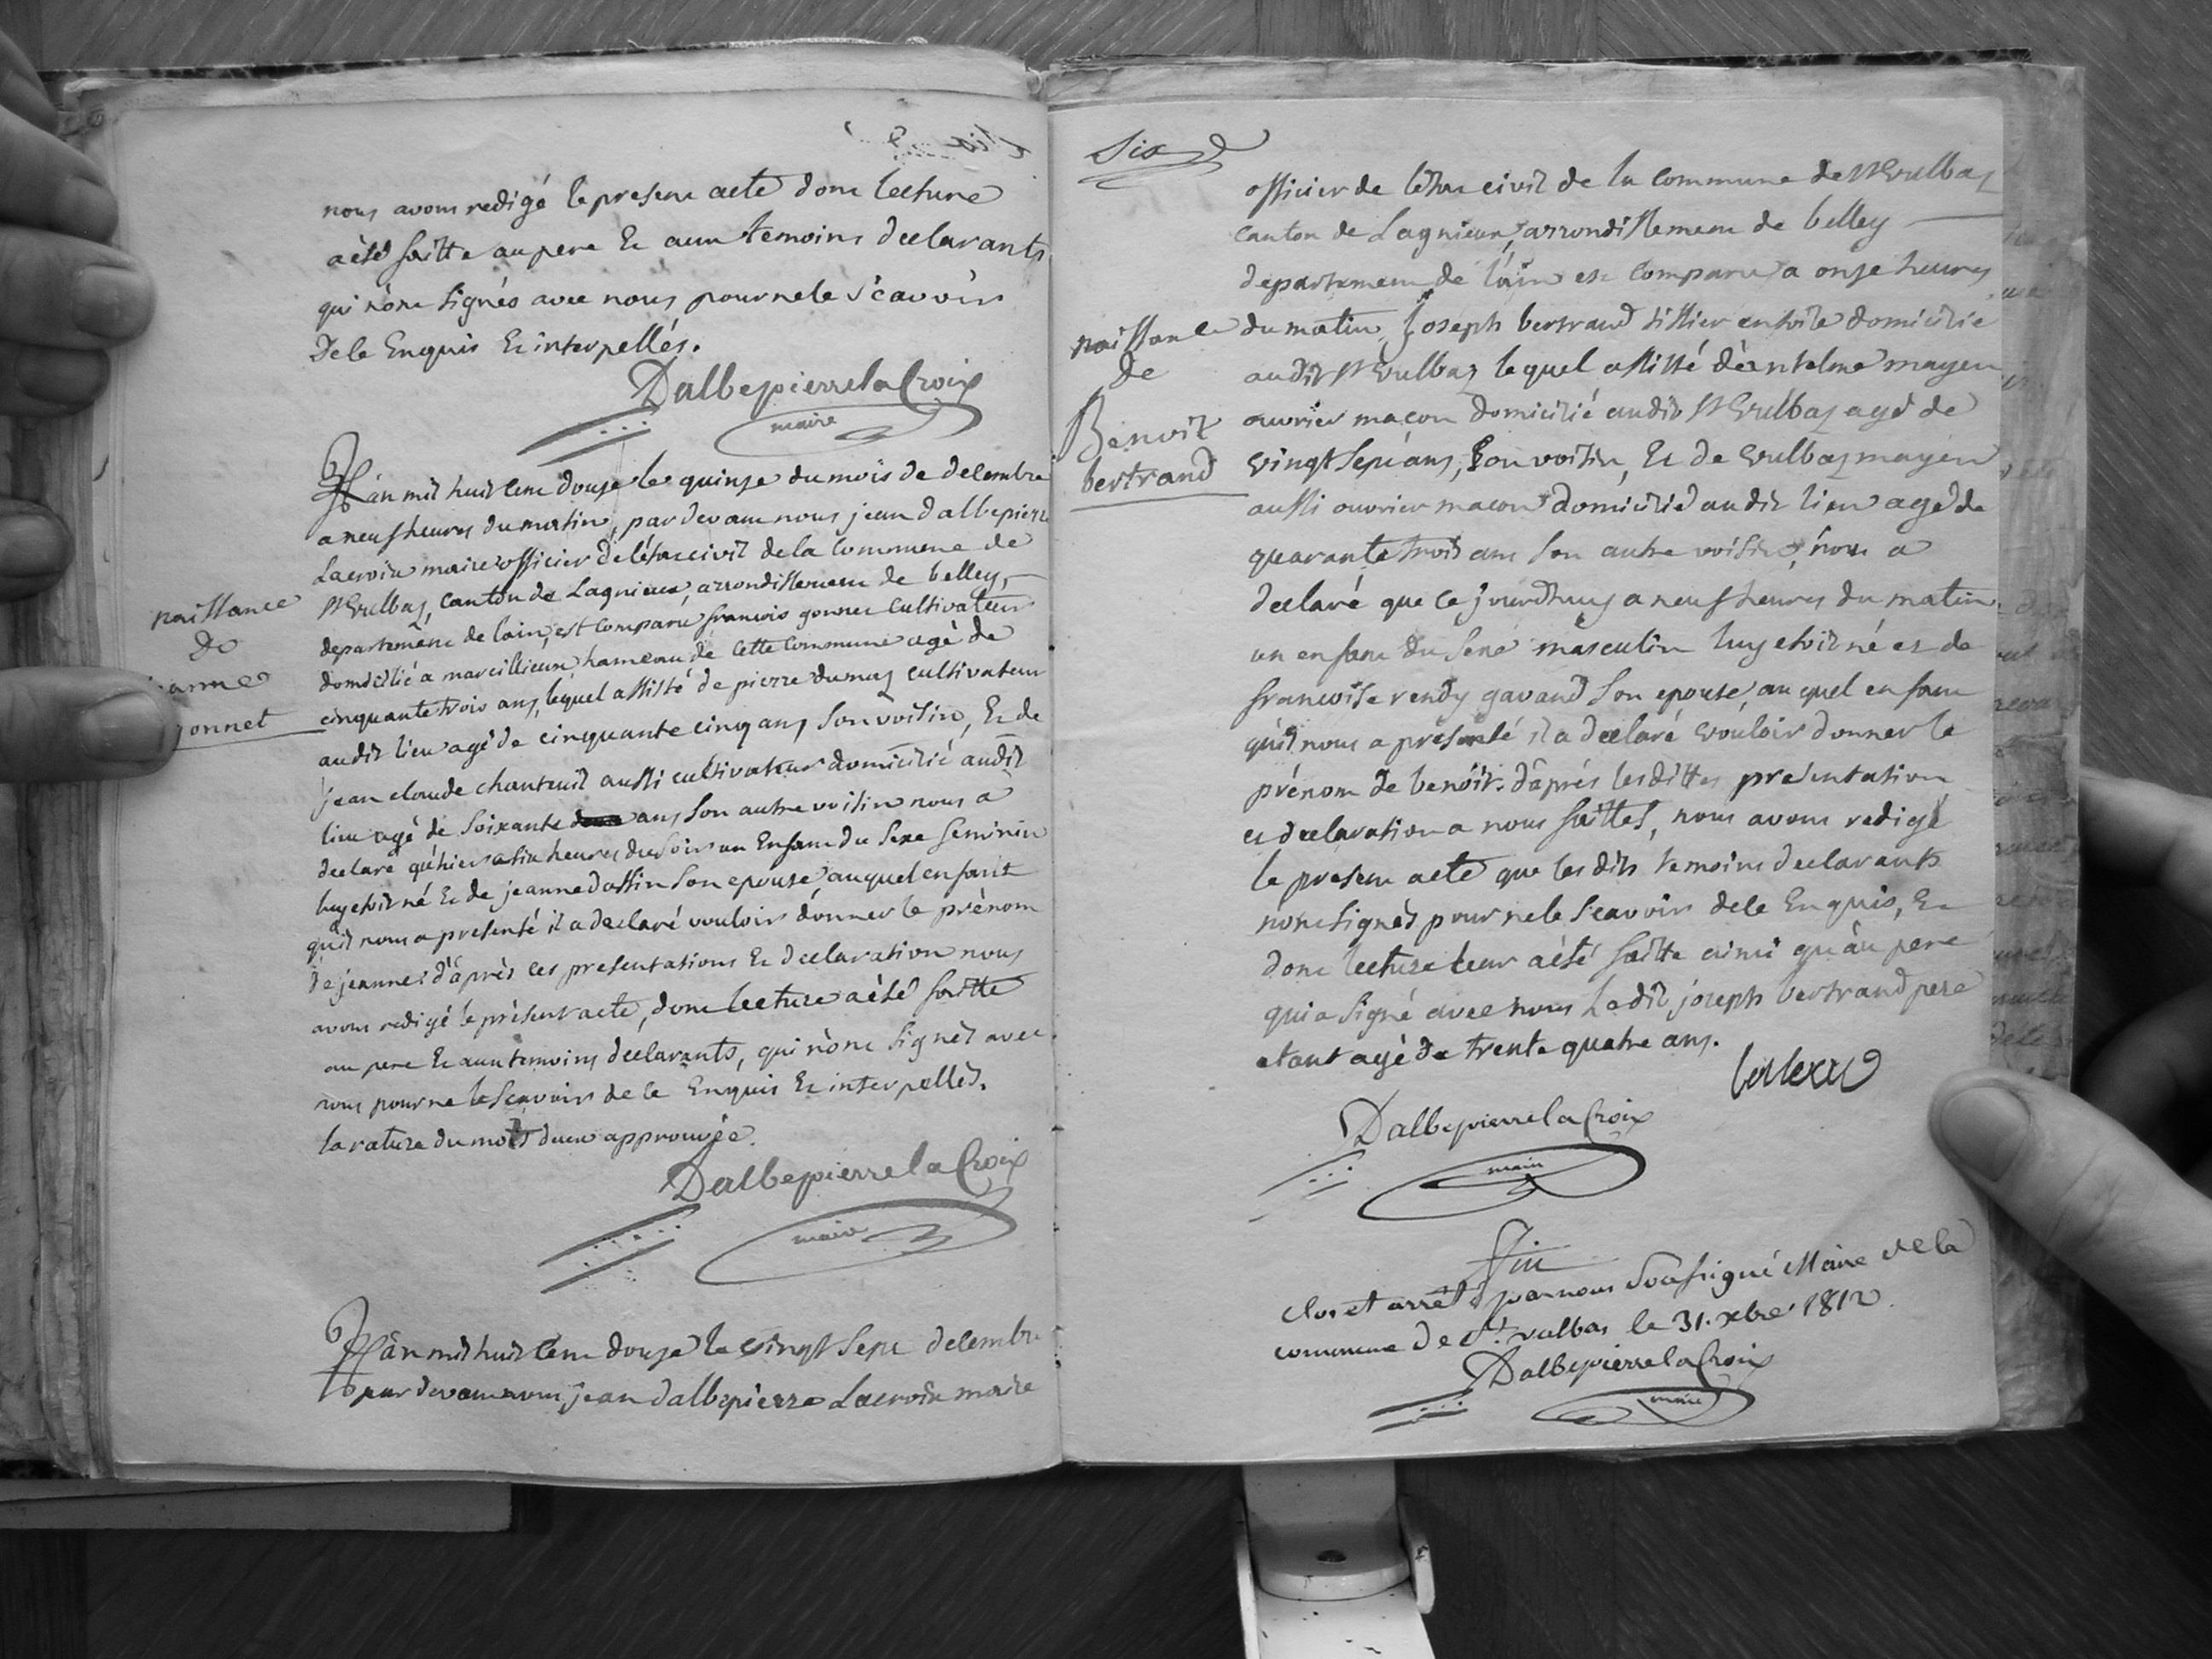 nous avons redigé le present acte dont lecture
a èté faitte au pere Et aux temoins declarants
qui n'ont signés avec nous pour ne le scavoir
De le Enquis Et interpellés.
DalbepierrelaCroix
maire
naissance
de
jeanne
gonnet
L'an mil huit cent douze le quinze du mois de decembre
a neuf heures du matin, par devant nous jean dalbepierre
Lacroix maire officier de l'état civil de la Commune de
St Vulbas, canton de Lagnieux, arrondissement de belley,
departement de l'ain, est comparu francois gonnet cultivateur
domicilié a marcillieux, hameau de cette Commune agé de
cinquante trois ans, lequel assisté de pierre dumas cultivateur
audit lieu agé de cinquante cinq ans son voisin, Et de
jean claude chanteuil aussi cultivateur domicilié audit
lieu agé de soixante ans son autre voisin nous a
declaré qu'hier a six heures du soir un Enfant du sexe feminin
luy etoit né Et de jeanne dassin son epouse, auquel enfant
qu'il nous a presenté il a declaré vouloir donner le prènom
de jeanne: d'àprès ces presentations Et declaration nous
avons redigé le présent acte, dont lecture a èté faitte
au pere Et aux temoins declarants, qui n'ont signés avec
nous pour ne le scavoir de le Enquis Et interpellés.
la rature du mot deux approuvée.
DalbepierrelaCroix
maire
L'an mil huit cent douze le vingt sept decembre
par devant nous jean dalbepierre Lacroix maire
Six
naissance
de
Benoit
bertrand
officier de l'état civil de la Commune de St Vulbas
canton de Lagnieux, arrondissement de belley
departement de l'ain est comparu a onze heures
du matin, Joseph bertrand tissier en toile domicilié
audit St Vulbas lequel assisté d'antelme mayen
ouvrier maçon domicilié audit St Vulbas agé de
vingt sept ans, son voisin, Et de vulbas mayen
aussi ouvrier macon domicilié audit lieu agé de
quarante trois ans son autre voisin, nous a
declaré que ce jourdhuy a neuf heures du matin
un enfant du sexe masculin luy etoit né et de
francoise rendy gavand son epouse, auquel enfant
qu'il nous a presenté il a declaré vouloir donner le
prénom de benoit. d'àprés lesdittes presentation
et declaration a nous faittes, nous avons redigé
le present acte que lesdits temoins declarants
n'ont signés pour ne le scavoir de le Enquis, Et
dont lecture leur a èté faitte ainsi qu'au pere
qui a signé avec nous Ledit joseph bertrand pere
etant agé de trente quatre ans.
DalbepierrelaCroix
maire
Fin
clos et arrêté par nous soussigné Maire de la
commune de St. vulbas le 31. xbre 1812.
DalbepierrelaCroix
maire